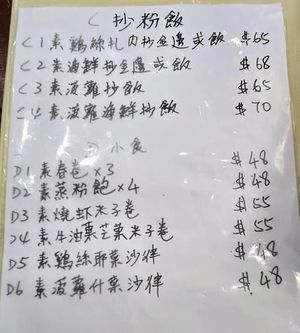 C 抄粉飯
C1 素鷄絲扎肉抄金边或飯 $65
C2 素海鮮抄金边或飯 $68
C3 素波蘿抄飯 $65
C4 素波蘿海鮮抄飯 $70
D 小食
D1 素春卷×3 $48
D2 素蒸粉飽×4 $48
D3 素燒虾米子卷 $55
D4 素牛油果芝菜米子卷 $55
D5 素鷄絲椰菜沙律 $48
D6 素波蘿什菜沙律 $48